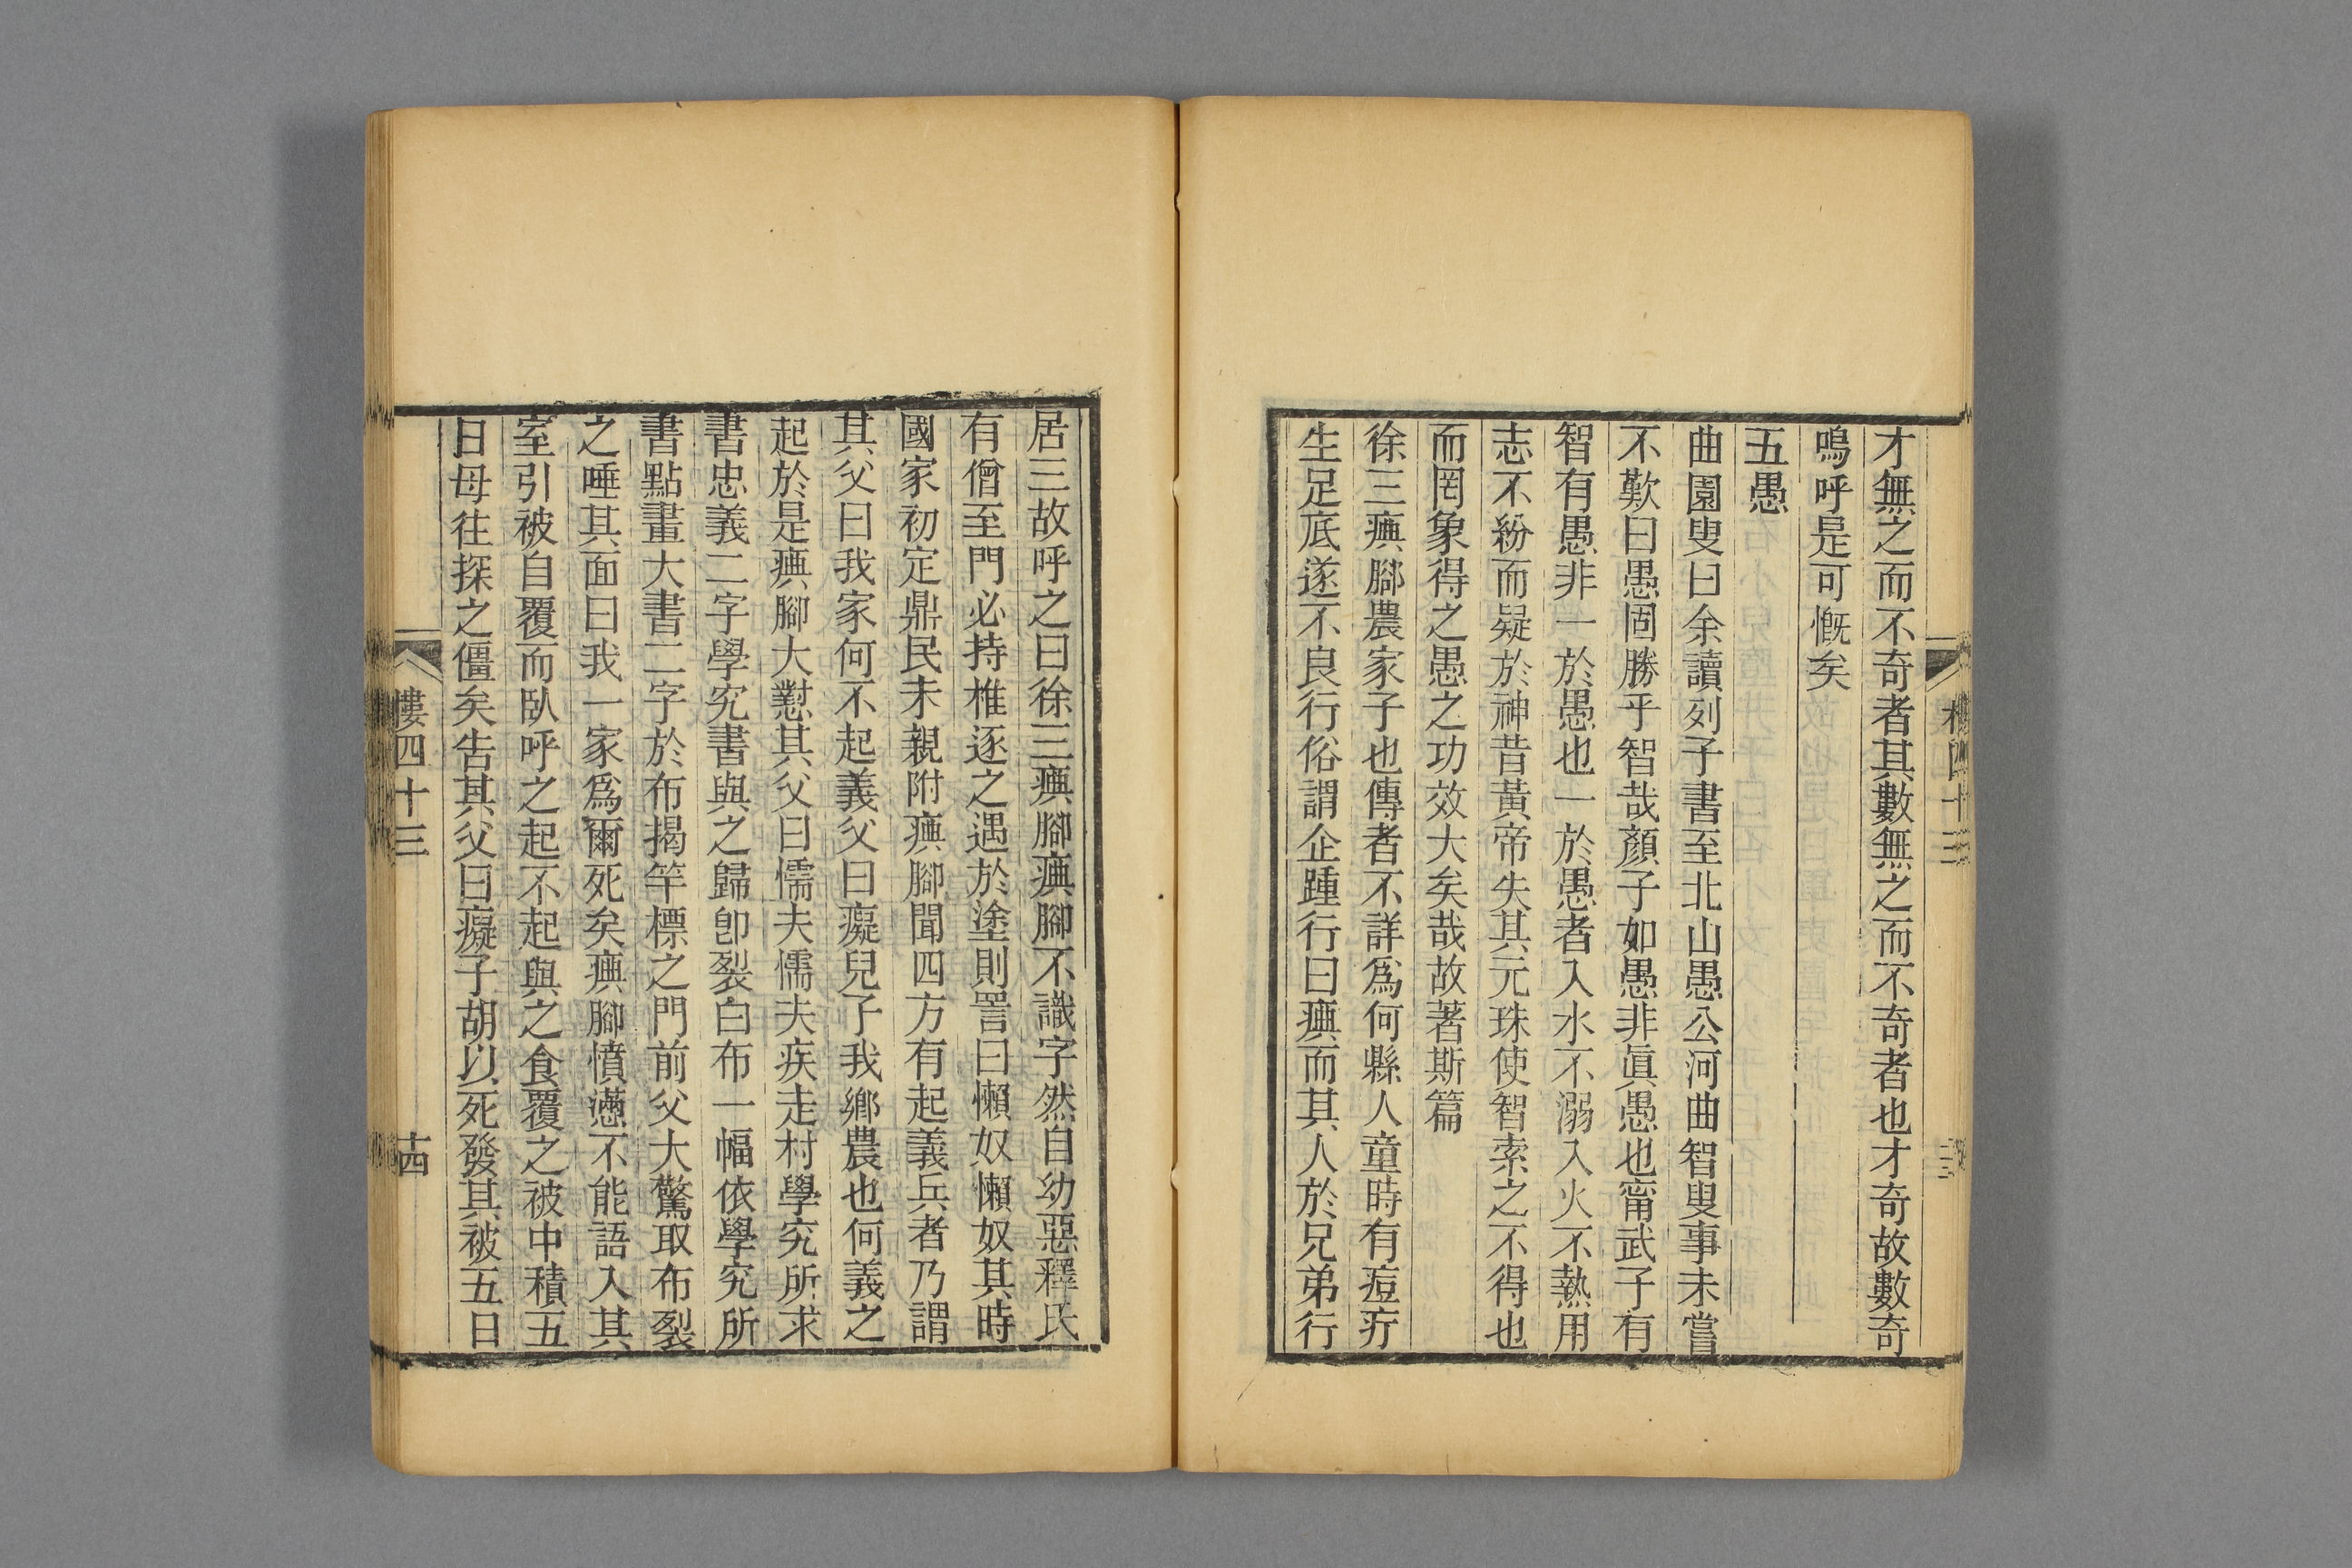 才無之而不奇者其數無之而不奇者也才奇故數奇
嗚呼是可慨矣
五愚
曲園叟曰余讀列子書至北山愚公河曲智叟事未嘗
不歎曰愚固勝乎智哉顏子如愚非眞愚也甯武子有
智有愚非一於愚也一於愚者入水不溺入火不熱用
志不紛而疑於神昔黃帝失其元珠使智索之不得也
而罔象得之愚之功效大矣哉故著斯篇
徐三㾫腳農家子也傳者不詳爲何縣人童時有痘疔
生足底遂不良行俗謂企踵行曰㾫而其人於兄弟行
居三故呼之曰徐三㾫腳㾫腳不識字然自幼惡釋氏
有僧至門必持椎逐之遇於塗則詈曰懶奴懶奴其時
國家初定鼎民未親附㾫腳聞四方有起義兵者乃謂
其父曰我家何不起義父曰癡兒子我鄉農也何義之
起於是㾫腳大懟其父曰懦夫懦夫疾走村學究所求
書忠義二字學究書與之歸卽裂白布一幅依學究所
書點畫大書二字於布揭竿標之門前父大驚取布裂
之唾其面曰我一家爲爾死矣㾫腳憤懣不能語入其
室引被自覆而臥呼之起不起與之食覆之被中積五
日母往探之僵矣告其父曰癡子胡以死發其被五日
樓四十三
十四